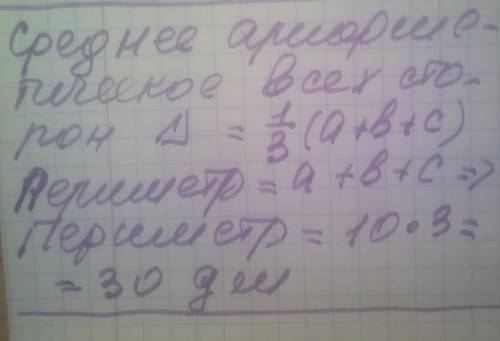 Среднее арифме-
тическое всех сто-
рон Δ = 1/3 (a+b+c)
Периметр = a+b+c =>
Периметр = 10·3=
= 30 дм